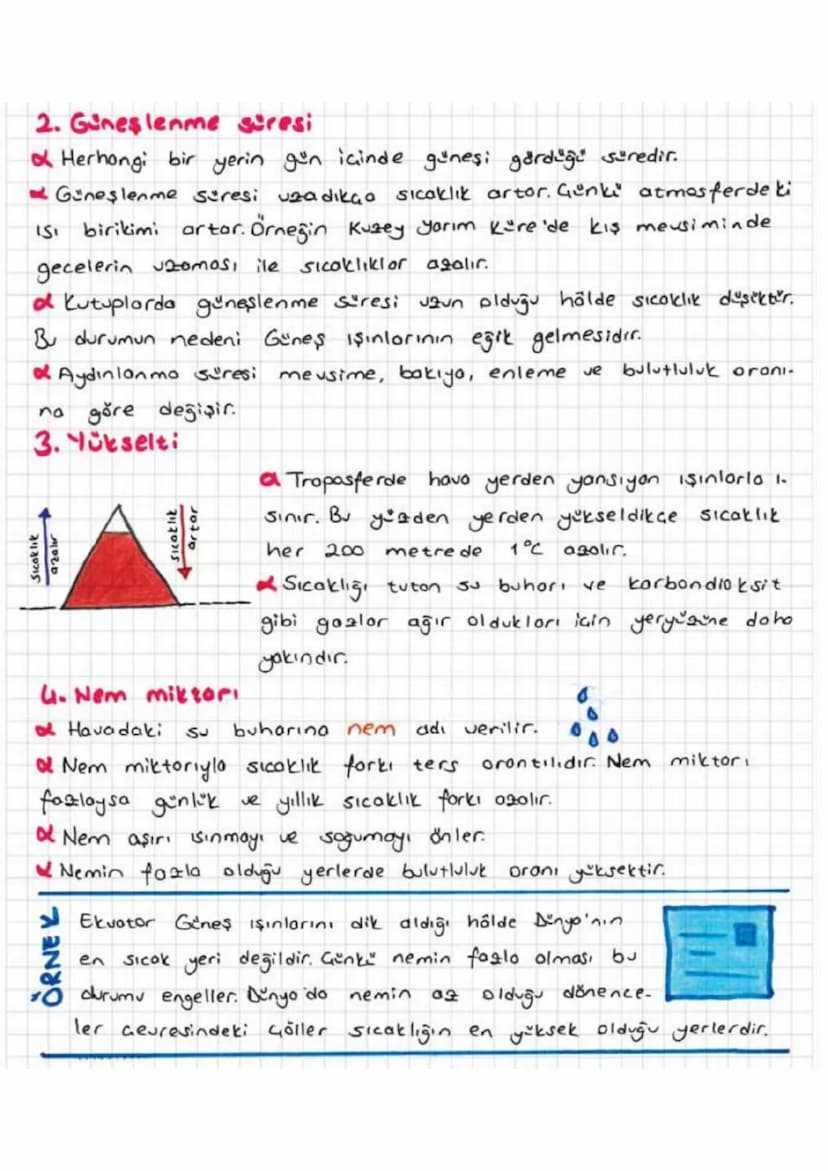 2. Güneşlenme süresi
Herhangi bir yerin gün içinde güneşi gördüğü süredir.
Güneşlenme süresi uzadıkça sıcaklık artar. Çünkü atmosferdeki
ısı birikimi artar. Örneğin Kuzey Yarım Küre'de kış mevsiminde
gecelerin uzaması ile sıcaklıklar azalır.
Kutuplarda güneşlenme süresi uzun olduğu hâlde sıcaklık düşüktür.
Bu durumun nedeni Güneş ışınlarının eğik gelmesidir.
Aydınlanma süresi mevsime, bakıya, enleme ve bulutluluk oranı-
na göre değişir.
3. Yükselti
sıcaklık
azalır
sıcaklık
artar
Troposferde hava yerden yansıyan ışınlarla ı-
sınır. Bu yüzden yerden yükseldikçe sıcaklık
her 200 metrede 1°C azalır.
Sıcaklığı tutan su buharı ve karbondioksit
gibi gazlar ağır oldukları için yeryüzüne daha
yakındır.
4. Nem miktarı
Havadaki su buharına nem adı verilir.
Nem miktarıyla sıcaklık farkı ters orantılıdır. Nem miktarı
fazlaysa günlük ve yıllık sıcaklık farkı azalır.
Nem aşırı ısınmayı ve soğumayı önler.
Nemin fazla olduğu yerlerde bulutluluk oranı yüksektir.
ÖRNEK
Ekvator Güneş ışınlarını dik aldığı hâlde Dünya'nın
en sıcak yeri değildir. Çünkü nemin fazla olması bu
durumu engeller. Dünya'da nemin az olduğu dönence-
ler çevresindeki çöller sıcaklığın en yüksek olduğu yerlerdir.